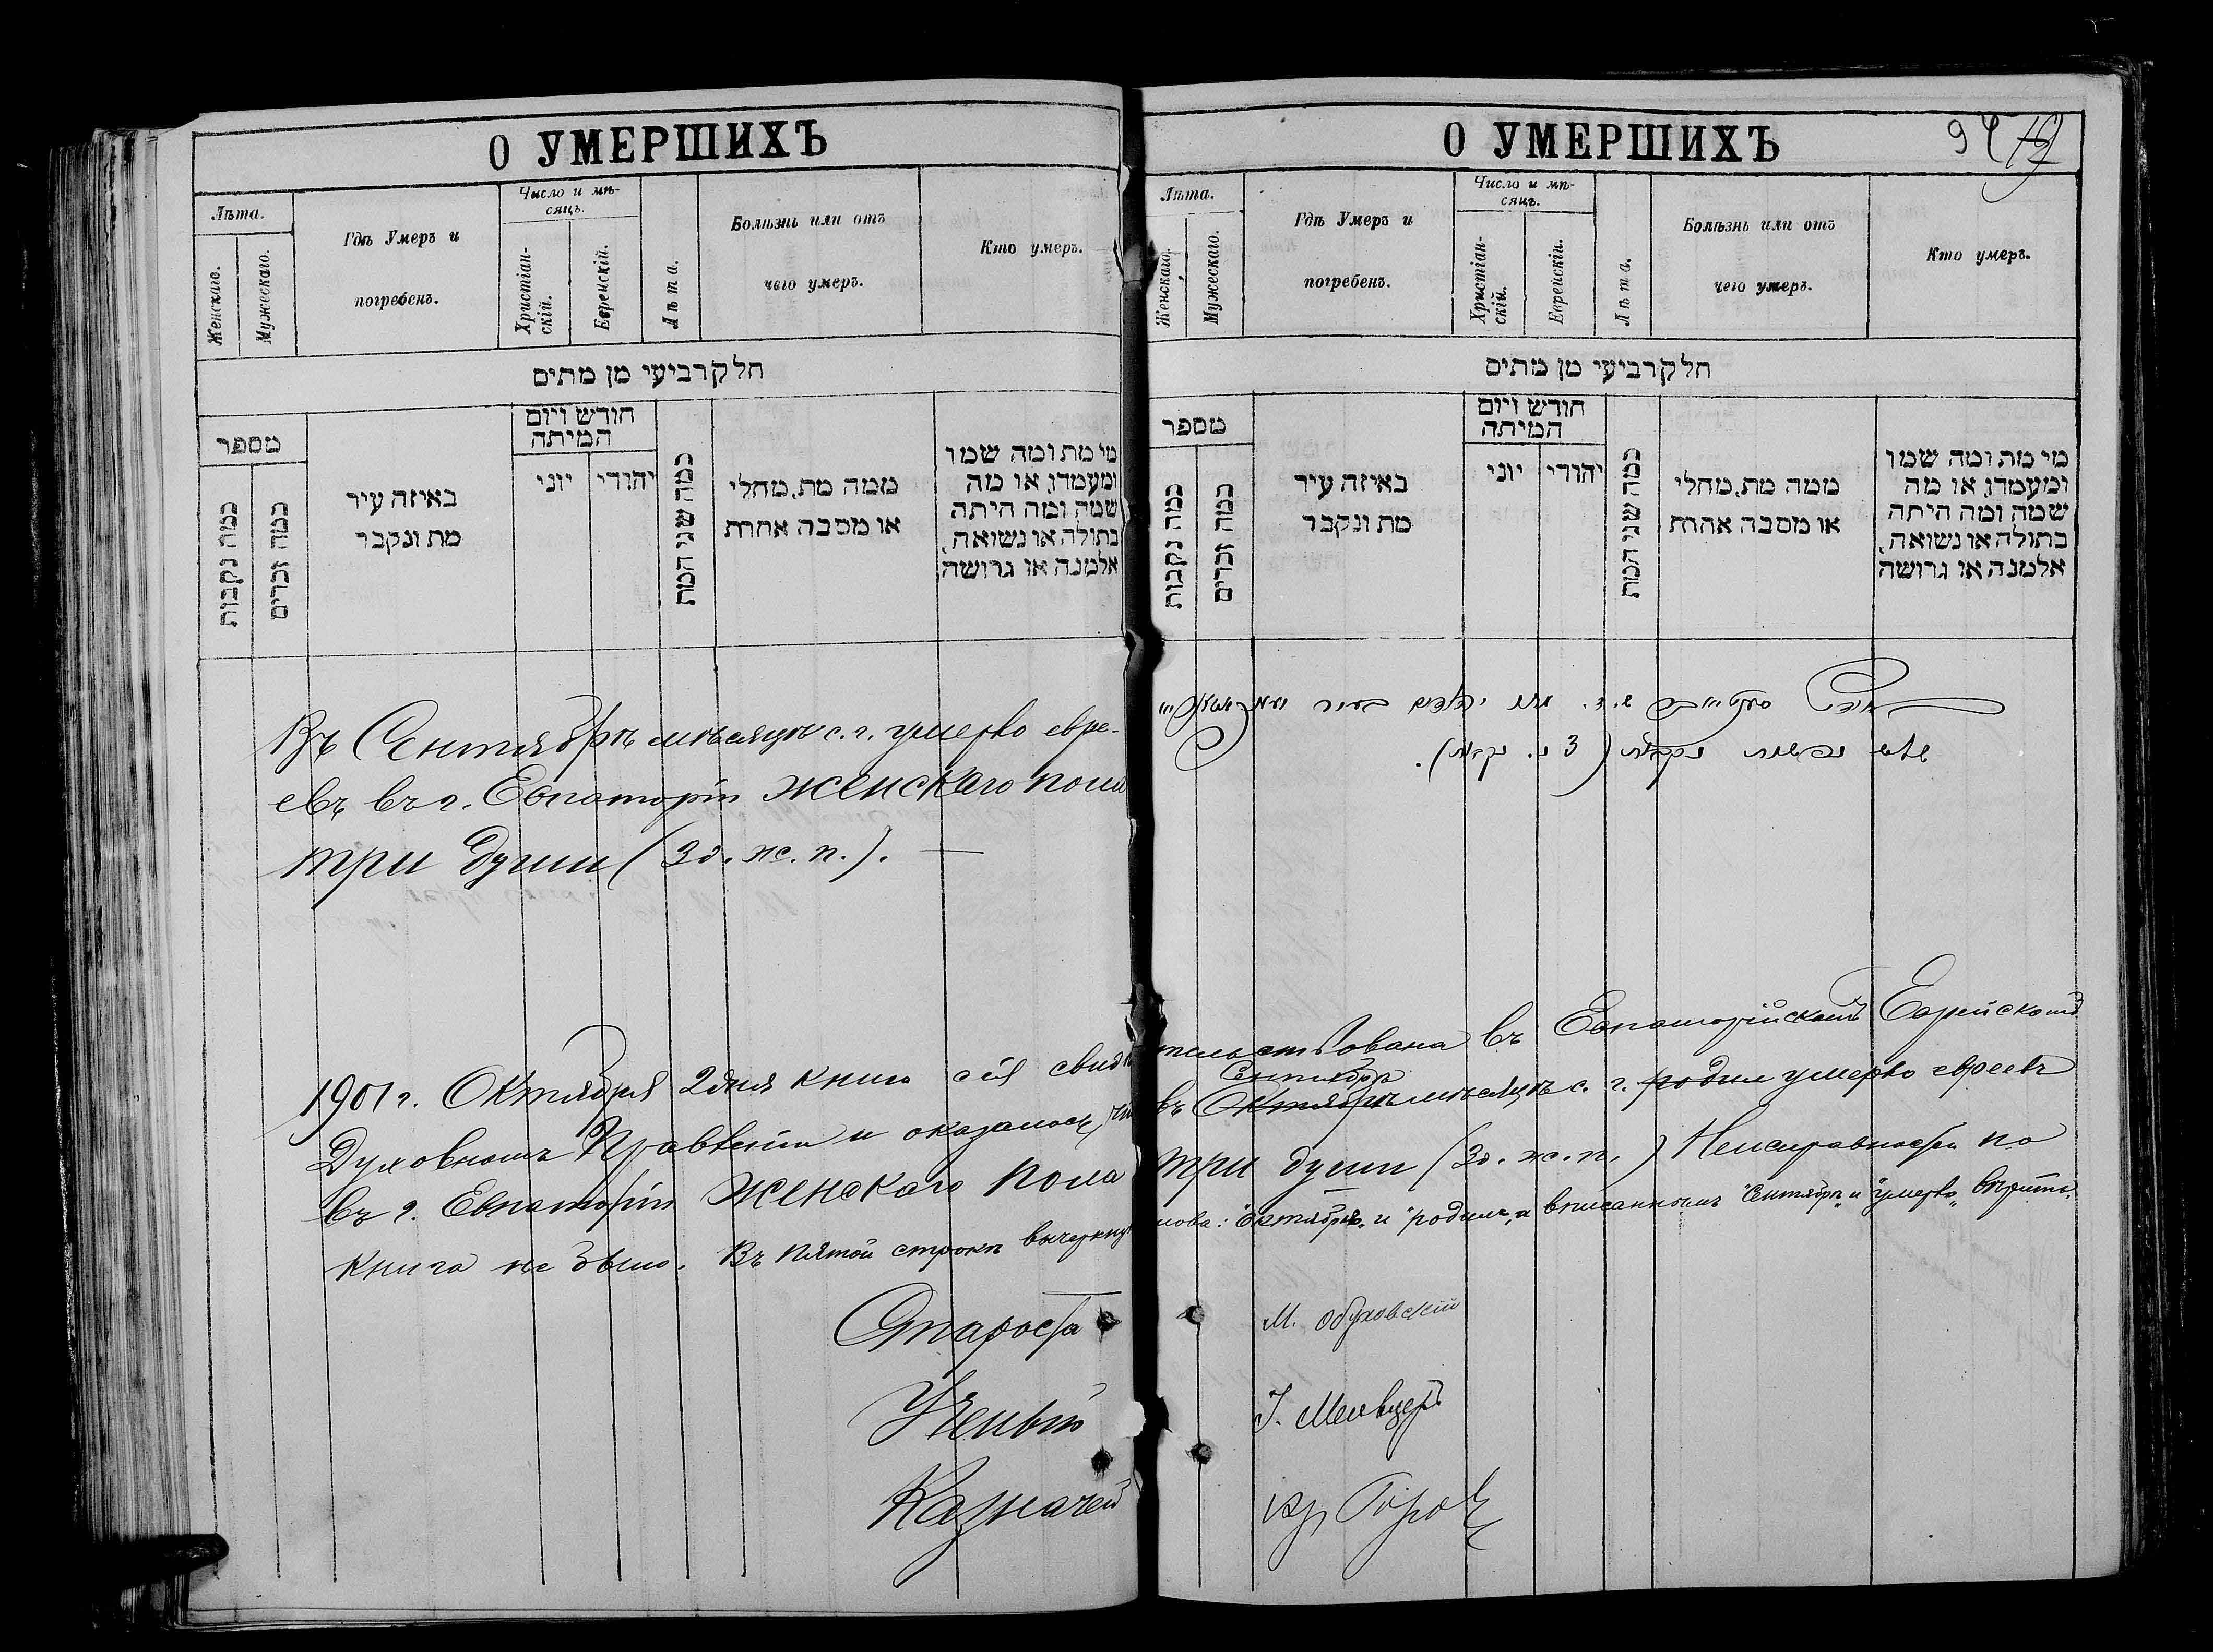 О УМЕРШИХЪ
Лѣта.
Женскаго.
Мужескаго.
Гдѣ Умеръ и
погребенъ.
Число и мѣ-
сяцъ.
Христіан-
скій.
Еврейскій.
Лѣта.
Болѣзнь или отъ
чего умеръ.
Кто умеръ.
חלק רביעי מן מתים
מספר
כמה נקבות
כמה זכרים
באיזה עיר
מת ונקבר
חודש ויום
המיתה
יוני
יהודי
כמה שני המת
ממה מת, מחלי
או מסבה אחרת
מי מת ומה שמו
ומעמדו, או מה
שמה ומה היתה
בתולה או נשואה,
אלמנה או גרושה
Въ Сентябрѣ мѣсяцѣ с. г. умерло евре-
евъ въ г. Евпаторіи женскаго пола
три души (3 д. ж. п.). —
О УМЕРШИХЪ
94
Лѣта.
Женскаго.
Мужескаго.
Гдѣ Умеръ и
погребенъ.
Число и мѣ-
сяцъ.
Христіан-
скій.
Еврейскій.
Лѣта.
Болѣзнь или отъ
чего умеръ.
Кто умеръ.
חלק רביעי מן מתים
מספר
כמה נקבות
כמה זכרים
באיזה עיר
מת ונקבר
חודש ויום
המיתה
יוני
יהודי
כמה שני המת
ממה מת, מחלי
או מסבה אחרת
מי מת ומה שמו
ומעמדו, או מה
שמה ומה היתה
בתולה או נשואה,
אלמנה או גרושה
מתו יהודים בעיר
שלש נפשות נקבות (3 נ. נקבות).
1901 г. Октября 2 дня книга сія свидѣтельствована въ Евпаторійскомъ Еврейскомъ
Сентябрѣ
Духовномъ Правленіи и оказалось, что въ Октябрѣ мѣсяцѣ с. г. родил умерло евреевъ
въ г. Евпаторіи женскаго пола три души (3 д. ж. п.) Неисправностей по
книгѣ не было. Въ пятой строкѣ вычеркнут слова: "Октябрѣ" и "родил", а вписаннымъ "Сентябрѣ" и "умерло" вѣрить.
Староста М. Обуховскій
Ученый
Казначей